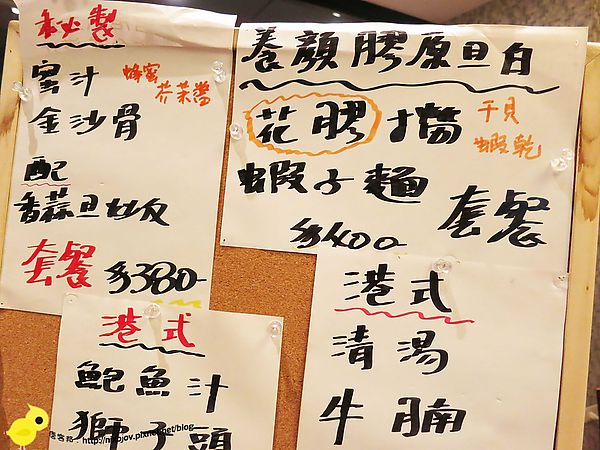 秘製
蜜汁
蜂蜜
芥茉醬
金沙骨
配
香蒜旦炒飯
套餐 $380-
養顏膠原旦白
花膠撈
干貝
蝦乾
蝦子麵
$400-
套餐
港式
鮑魚汁
獅子頭
港式
清湯
牛腩